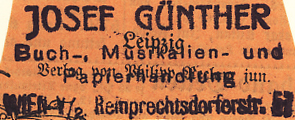 JOSEF GÜNTHER
Leipzig
Buch-, Musikalien- und
Verlag von Philipp jun.
Papierhandlung
WIEN V/2 Reinprechtsdorferstr.